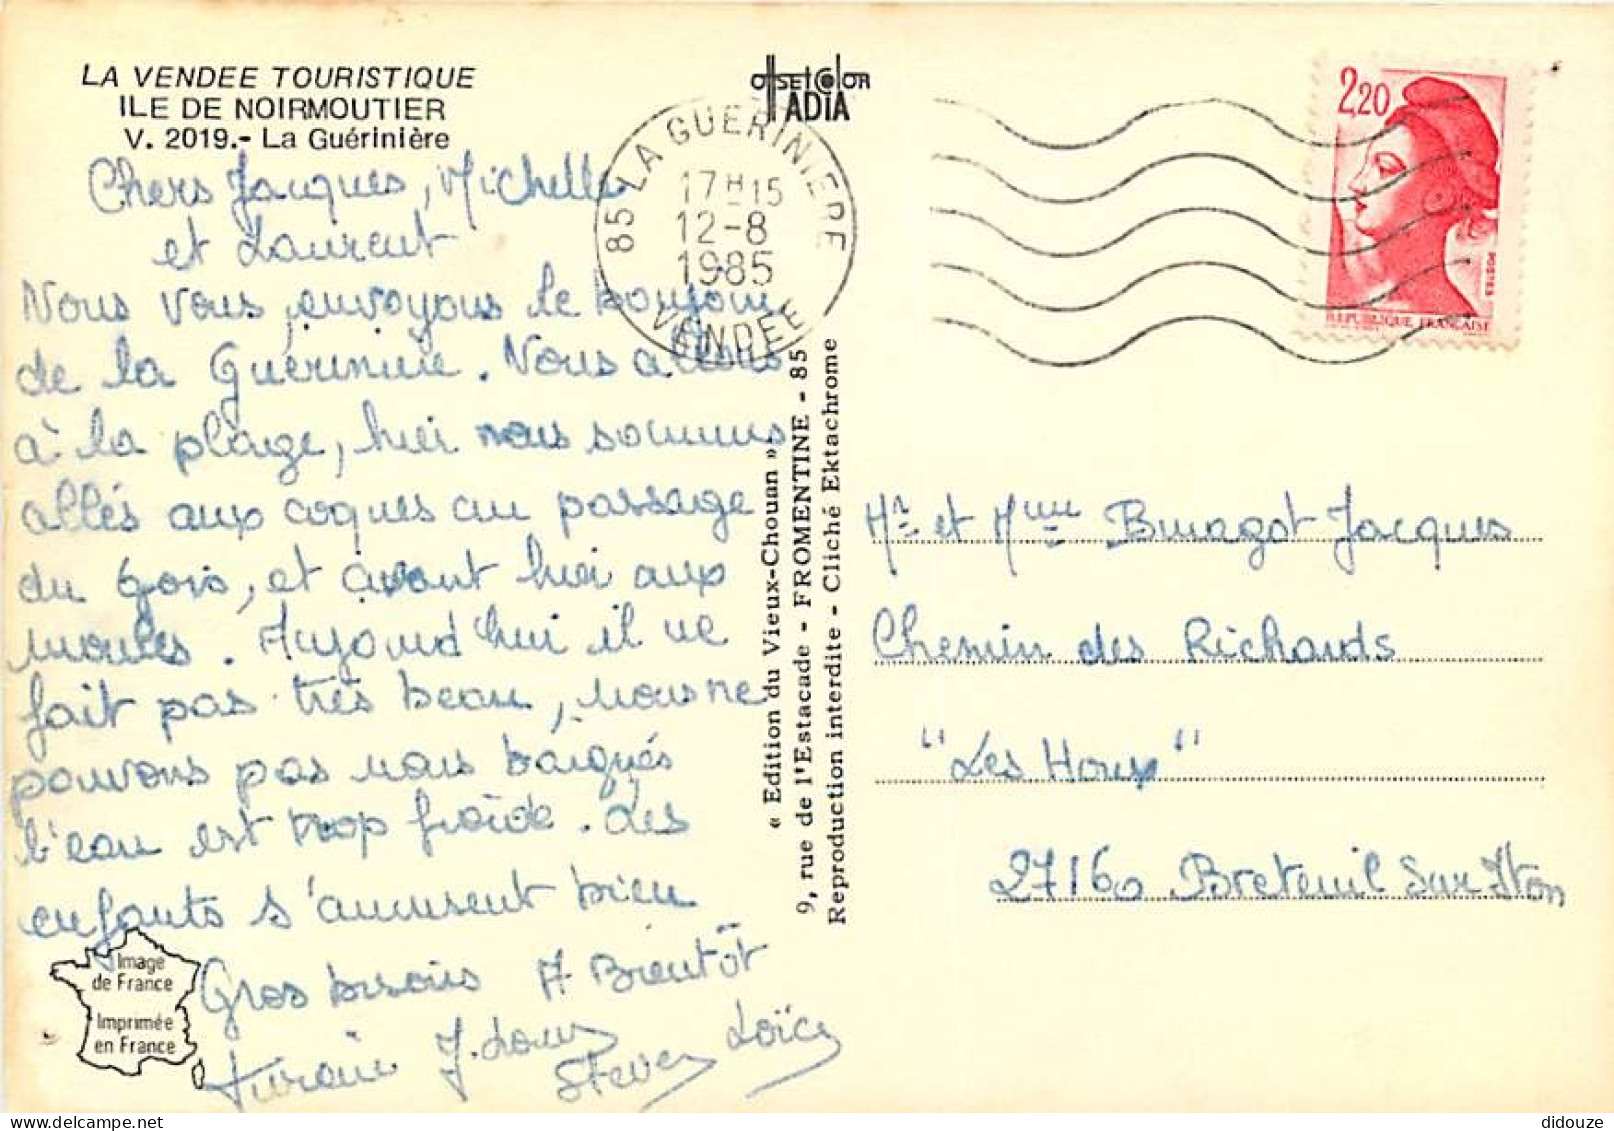 LA VENDEE TOURISTIQUE
ILE DE NOIRMOUTIER
V. 2019.- La Guérinière
Offset Color
ADIA
85 LA GUERINIERE
17H15
12-8
1985
VENDEE
2,20
POSTES
REPUBLIQUE FRANÇAISE
Chers Jacques, Michelle
et Laurent
Nous vous envoyons le bonjour
de la Guérinière. Nous allons
à la plage, hier nous sommes
allés aux coques au passage
du Gois, et avant hier aux
moules. Aujourd'hui il ne
fait pas très beau, nous ne
pouvons pas nous baignés
l'eau est trop froide. Les
enfants s'amusent bien
Gros bisous A Bientôt
J. Louis
Steven Loïc
« Edition du Vieux-Chouan »
9, rue de l'Estacade - FROMENTINE - 85
Reproduction interdite - Cliché Ektachrome
Mr et Mme Jacques
Chemin des Richards
"Les Houx"
27160 Breteuil sur Iton
Image
de France
Imprimée
en France
didouze